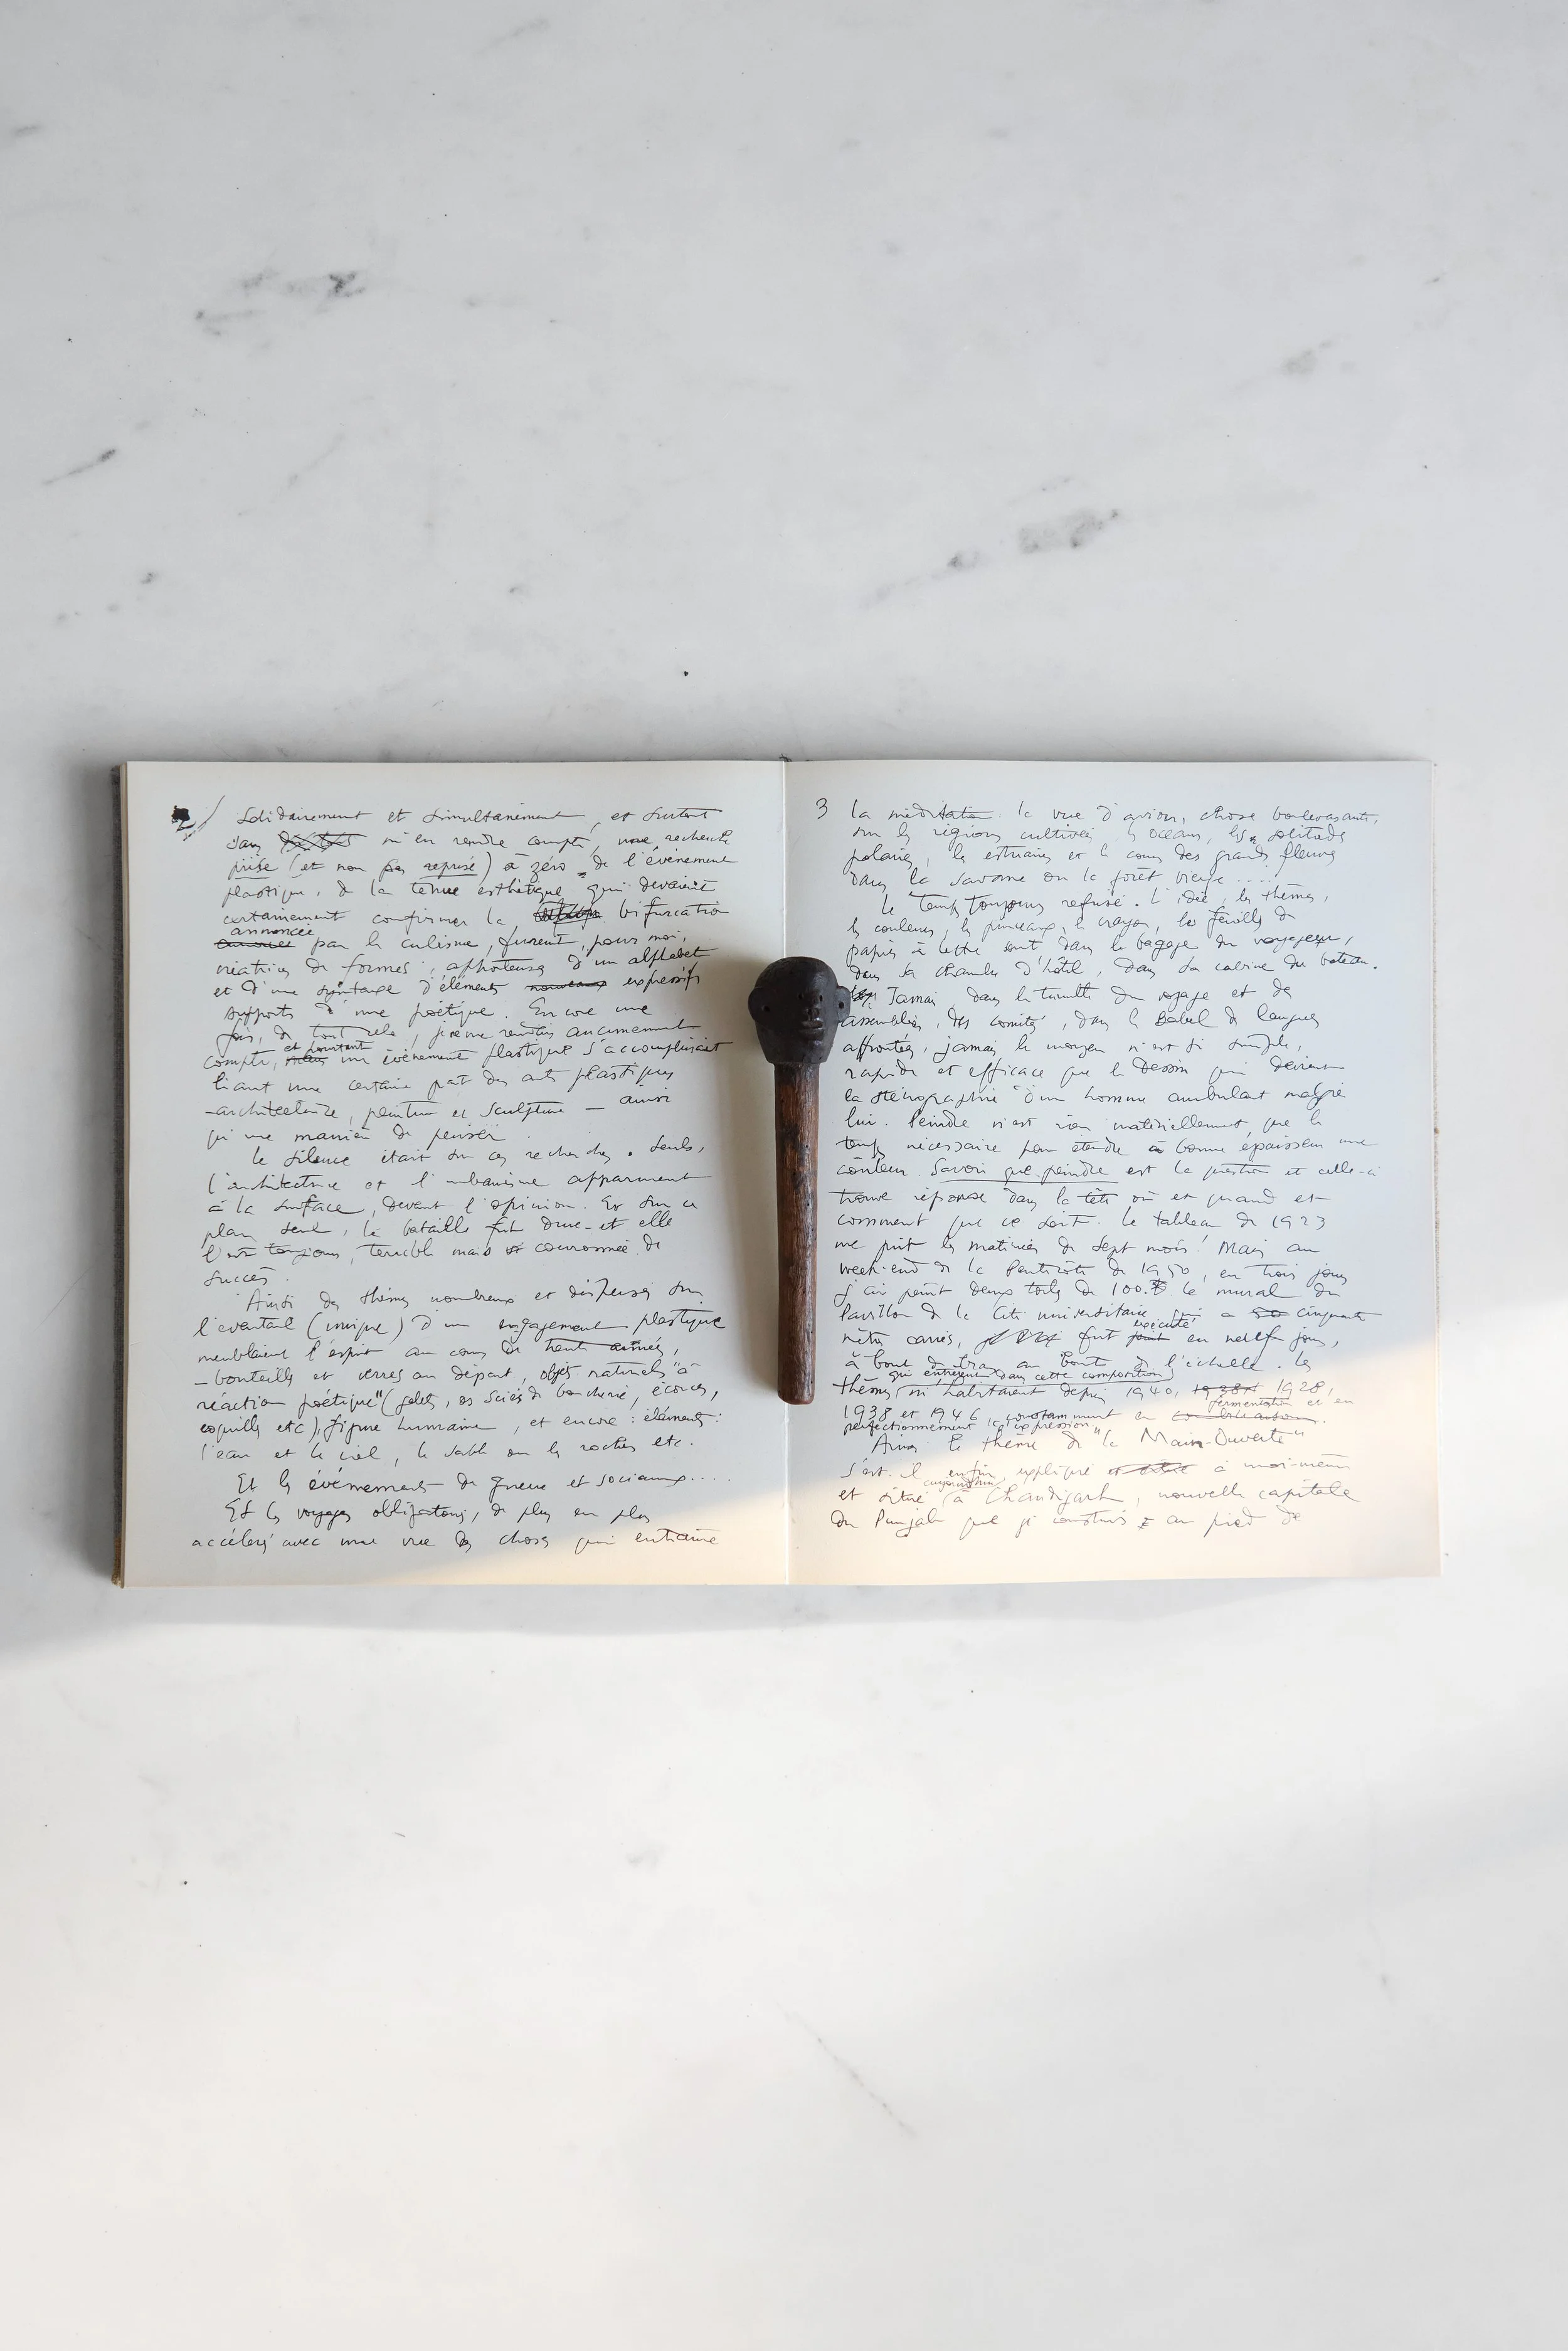 2/ Solidairement et simultanément, et surtout
sans m'en rendre compte, une recherche
prise (et non pas reprise) à zéro de l'événement
plastique, de la tenue esthétique qui devaient
certainement confirmer la bifurcation
annoncée
par le cubisme, furent, pour moi,
créatrices de formes; apporteuses d'un alphabet
et d'une syntaxe d'éléments nouveaux expressifs
supports d'une poétique. Encore une
fois, de tout cela, je ne rendais aucunement
et pourtant
compte, mais un événement plastique s'accomplissait
liant une certaine part des arts plastiques
– architecture, peinture et sculpture – ainsi
qu'une manière de penser.
Le silence était sur ces recherches. Seuls,
l'architecture et l'urbanisme apparurent
à la surface, devant l'opinion. Et sur ce
plan seul, la bataille fut dure – et elle
l'est toujours, terrible mais couronnée de
succès.
Ainsi des thèmes nombreux et dispersés sur
l'éventail (unique) d'un engagement plastique
meublaient l'esprit au cours de trente années,
– bouteilles et verres au départ, objets naturels "à
réaction poétique" (galets, os sciés de boucherie, écorces,
coquilles etc), figure humaine, et encore: éléments:
l'eau et le ciel, le sable ou les roches etc.
Et les événements de guerre et sociaux....
Et les voyages obligatoires, de plus en plus
accélérés avec une vue des choses qui entraîne
3 la méditation: la vue d'avion, chose bouleversante,
sur les régions cultivées, les océans, les solitudes
polaires, les estuaires et le cours des grands fleuves
dans la savane ou la forêt vierge ....
Le temps toujours refusé. L'idée, les thèmes,
les couleurs, les pinceaux, le crayon, les feuilles de
papier à lettre sont dans le bagage du voyageur,
dans sa chambre d'hôtel, dans sa cabine du bateau.
Jamais, dans le tumulte du voyage et des
assemblées, des comités, dans le Babel de langues
affrontées, jamais le moyen n'est si simple,
rapide et efficace que le dessin qui devient
la sténographie d'un homme ambulant malgré
lui. Peindre n'est rien matériellement, que le
temps nécessaire pour étendre à bonne épaisseur une
couleur. Savoir que peindre est la question et celle-ci
trouve réponse dans la tête où et quand et
comment que ce soit. Le tableau de 1923
me prit les matinées de sept mois! Mais au
week-end de la Pentecôte de 1950, en trois jours
j'ai peint deux toiles de 100. Le mural du
Pavillon de la Cité universitaire qui a cinquante
exécuté
mètres carrés, fut en neuf jours,
à bout de bras au bout de l'échelle. Les
qui entrèrent dans cette composition
thèmes m'habitaient depuis 1940, 1928,
fermentation et en
1938 et 1946 constamment en
perfectionnement d'expression
Ainsi le thème de "la Main-Ouverte"
s'est-il enfin, expliqué à moi-même
aujourd'hui
et situé à Chandigarh, nouvelle capitale
du Punjab que je construis au pied de